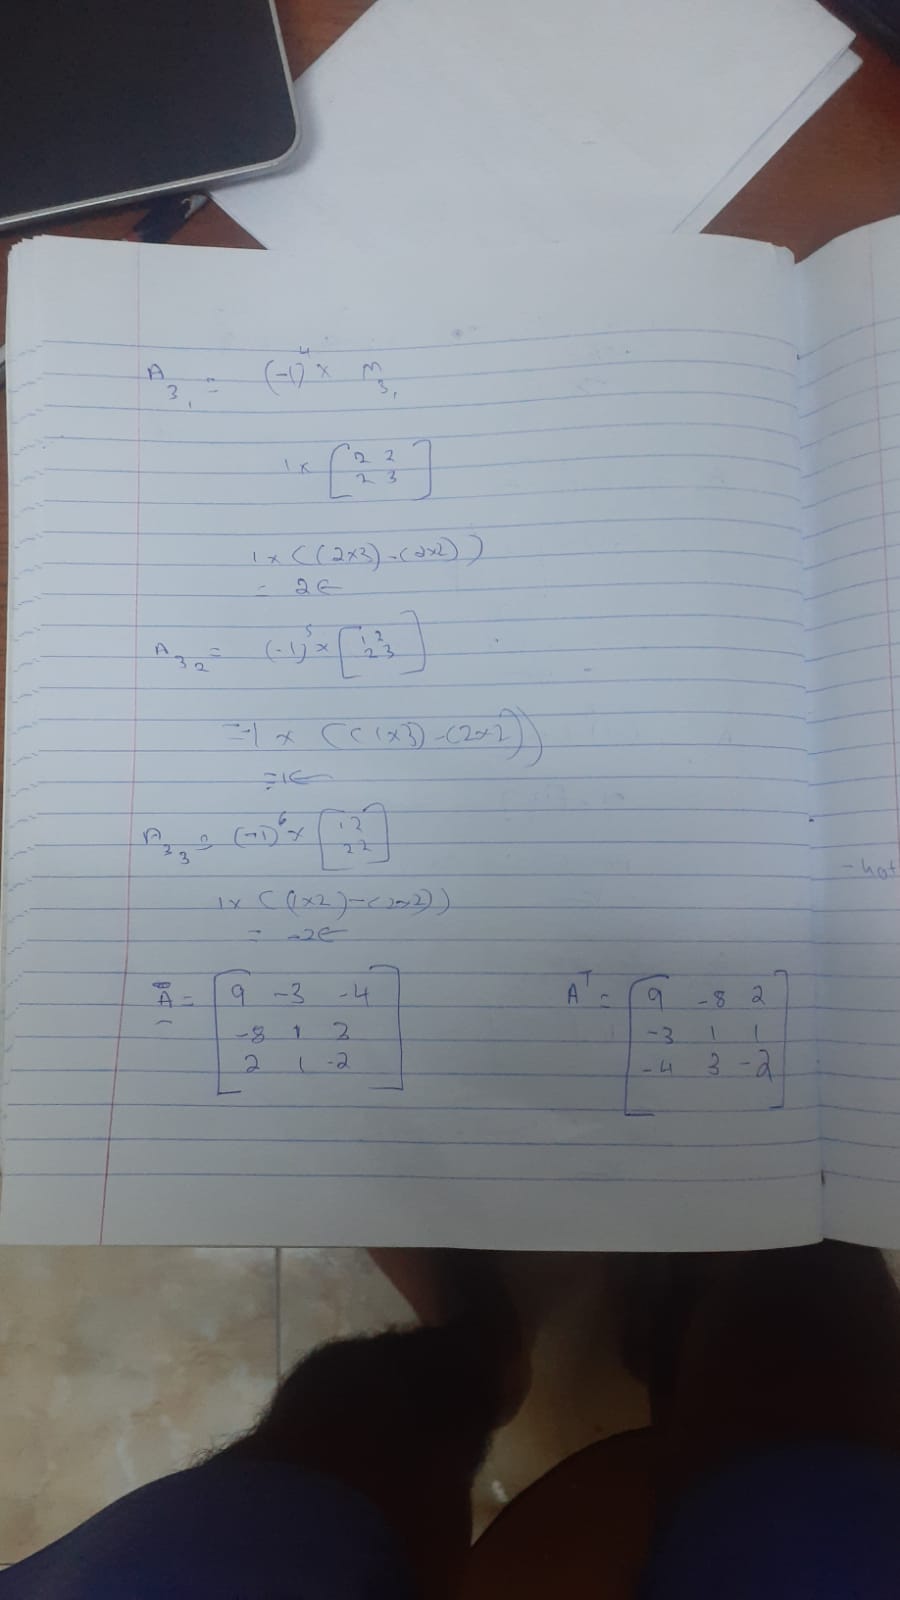 A₃₁ = (-1)⁴ × M₃₁
1 × [2 2
2 3]
1 × ((2×3) - (2×2))
= 2 ←
A₃₂ = (-1)⁵ × [1 2
2 3]
= -1 × ((1×3) - (2×2))
= 1 ←
A₃₃ = (-1)⁶ × [1 2
2 2]
1 × ((1×2) - (2×2))
= -2 ←
A = [9 -3 -4
-8 1 3
2 1 -2]
Aᵀ = [9 -8 2
-3 1 1
-4 3 -2]
- hot